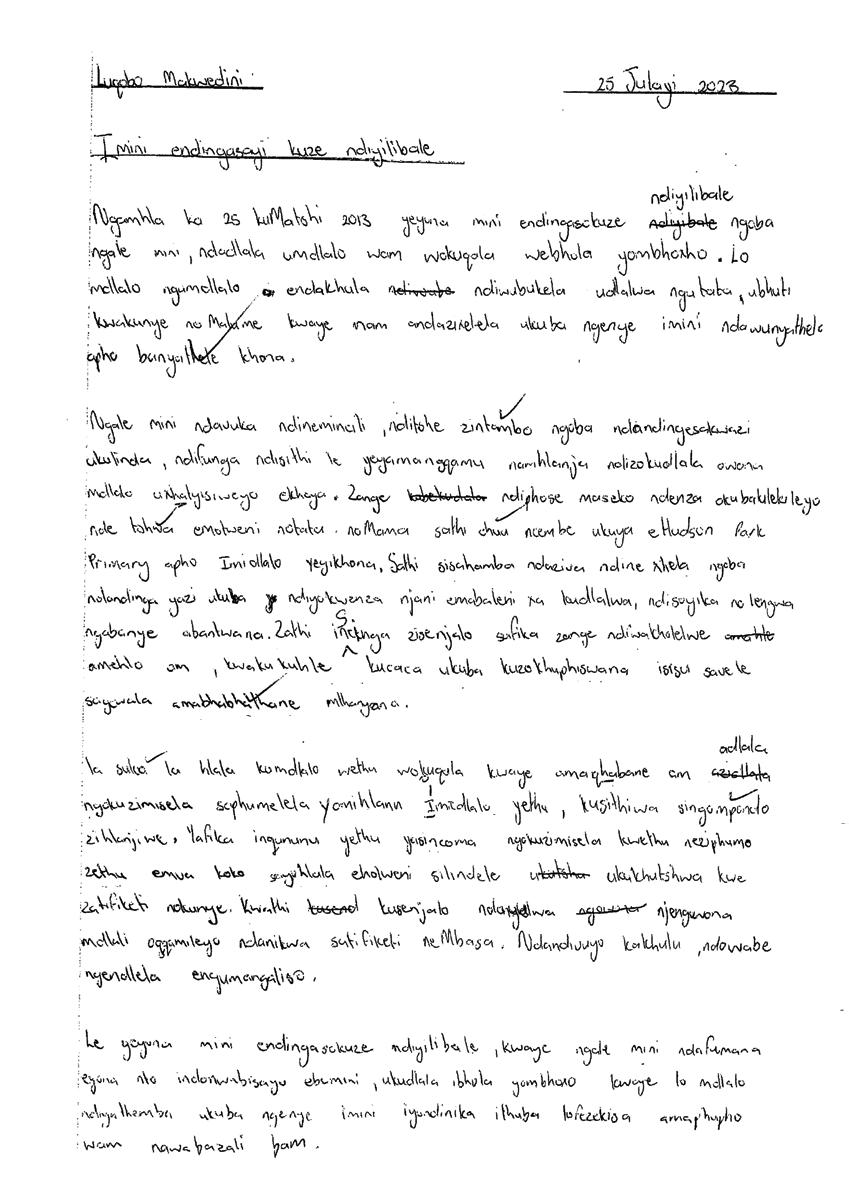 Luqobo Makwedini
25 Julayi 2023
Imini endingasayi kuze ndiyilibale
ndiyilibale
Ngamhla ka 25 kuMatshi 2013 yeyona mini endingasokuze ndiyibale ngoba
ngale mini, ndadlala umdlalo wam wokuqala webhola yombhoxho. Lo
mdlalo ngumdlalo endakhula ndiwubukela udlalwa ngutata, ubhuti
kwakunye noMalume kwaye nam andazixelela ukuba ngenye imini ndawunyathela
apho banyathele khona.
Ngale mini ndavuka ndinemincili, nditshe zintambo ngoba ndandingesakwazi
ukulinda, ndifunga ndisithi le yeyamangqamu namhlanja ndizokudlala owona
mdlalo uxhalyisiweyo ekhaya. Zange ndiphose maseko ndenza okubalulekileyo
nde tshwa emotweni notata noMama sathi chuu ncembe ukuya eHudson Park
Primary apho Imidlalo yeyikhona, Sathi sisahamba ndaziva ndine xhela ngoba
ndandinga yazi ukuba ndiyokwenza njani emabaleni xa kudlalwa, ndisoyika nolengwa
ngabanye abantwana. Zathi S. inctunga zisenjalo safika zange ndiwakholelwe
amehlo am, kwaku kuhle kucaca ukuba kuzokhuphiswana isisu savele
sagwala amabhabhathane mihanyana.
adlala
Ia suka la hlala kumdlalo wethu wokuqala kwaye amaqhabane am
ngokuzimisela saphumelela yonihlann Imidlalo yethu, kusithiwa singompondo
zihlanjiwe. Yafika ingununu yethu yasincoma ngokuzimisela kwethu neziphumo
zethu emva koko sayihlala eholweni silindele ukukhutshwa kwe
zatifiketi ndkunye. Kwathi kusenjalo njengwona
mdlali oqqamileyo ndanikwa satifiketi neMbasa. Ndandivuyo kakhulu, ndowabe
ngendlela engumangaliso.
Le yeyona mini endingasokuze ndiyilibale, kwaye ngale mini ndafumana
eyona nto indonwabisayo ebomini, ukudlala ibhola yombhoxo kwaye lo mdlalo
ndiyathemba ukuba ngenye imini iyondinika ithuba lofezekisa amaphupho
wam nawabazali bam.